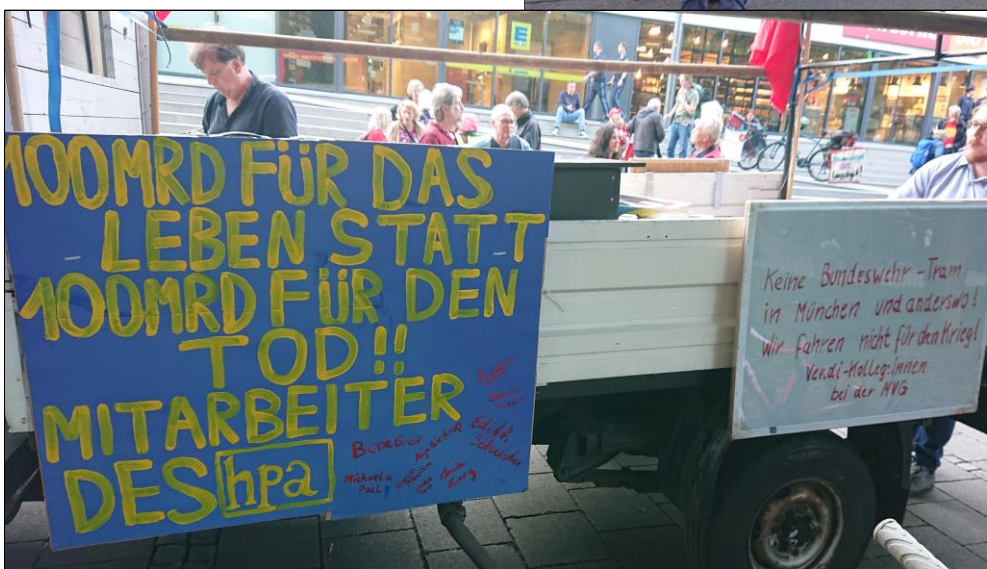 100MRD FÜR DAS
LEBEN STATT
100MRD FÜR DEN
TOD!!
MITARBEITER
DES hpa
Michaela
Paul
Edith
Keine Bundeswehr-Tram
in München und anderswo!
Wir fahren nicht für den Krieg!
Ver.di-Kolleg:innen
bei der MVG